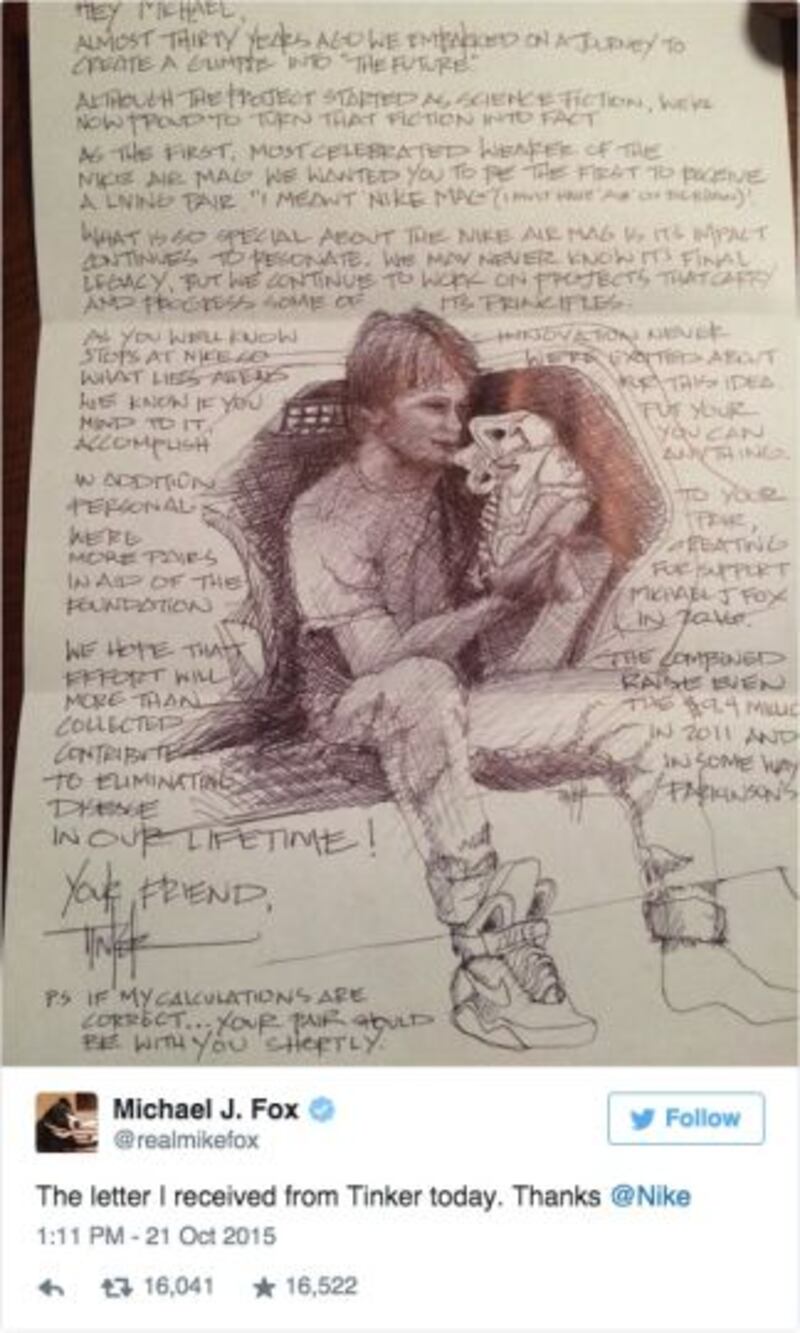 HEY MICHAEL,
ALMOST THIRTY YEARS AGO WE EMBARKED ON A JOURNEY TO
CREATE A GLIMPSE INTO "THE FUTURE"
ALTHOUGH THE PROJECT STARTED AS SCIENCE FICTION, WE'RE
NOW PROUD TO TURN THAT FICTION INTO FACT
AS THE FIRST, MOST CELEBRATED WEARER OF THE
NIKE AIR MAG WE WANTED YOU TO BE THE FIRST TO RECEIVE
A LIVING PAIR "I MEANT NIKE MAG"
WHAT IS SO SPECIAL ABOUT THE NIKE AIR MAG IS ITS IMPACT
CONTINUES TO RESONATE. WE MAY NEVER KNOW ITS FINAL
LEGACY, BUT WE CONTINUE TO WORK ON PROJECTS THAT CARRY
AND PROGRESS SOME OF ITS PRINCIPLES.
AS YOU WELL KNOW INNOVATION NEVER
STOPS AT NIKE SO WE'RE EXCITED ABOUT
WHAT LIES AHEAD FOR THIS IDEA
WE KNOW IF YOU PUT YOUR
MIND TO IT, YOU CAN
ACCOMPLISH ANYTHING.
IN ADDITION TO YOUR
PERSONAL PAIR,
WE'RE CREATING
MORE PAIRS FOR SUPPORT
IN AID OF THE MICHAEL J FOX
FOUNDATION IN 2016.
WE HOPE THAT THE COMBINED
EFFORT WILL RAISE EVEN
MORE THAN THE $9.4 MILLIO
COLLECTED IN 2011 AND
CONTRIBUTE IN SOME WAY
TO ELIMINATING PARKINSON'S
DISEASE
IN OUR LIFETIME!
YOUR FRIEND,
TINKER
P.S IF MY CALCULATIONS ARE
CORRECT... YOUR PAIR SHOULD
BE WITH YOU SHORTLY.
Michael J. Fox
@realmikefox
Follow
The letter I received from Tinker today. Thanks @Nike
1:11 PM - 21 Oct 2015
16,041 16,522